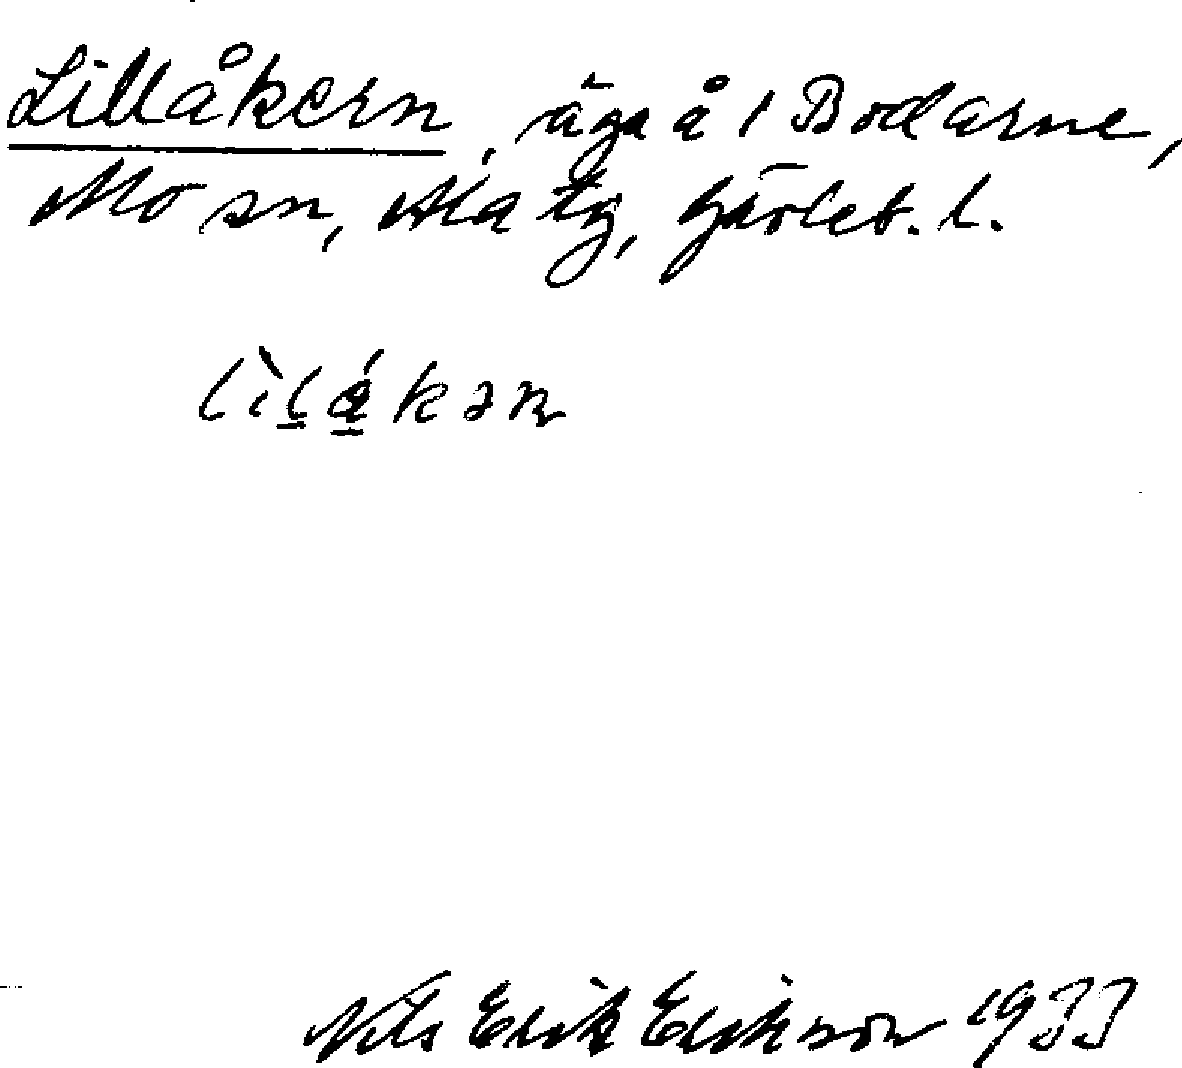 Lillåkern, äga å 1 Bodarne,
Mo sn, Ala tg, Gävleb. l.
lìlákən
Nils Erik Erikson 1933